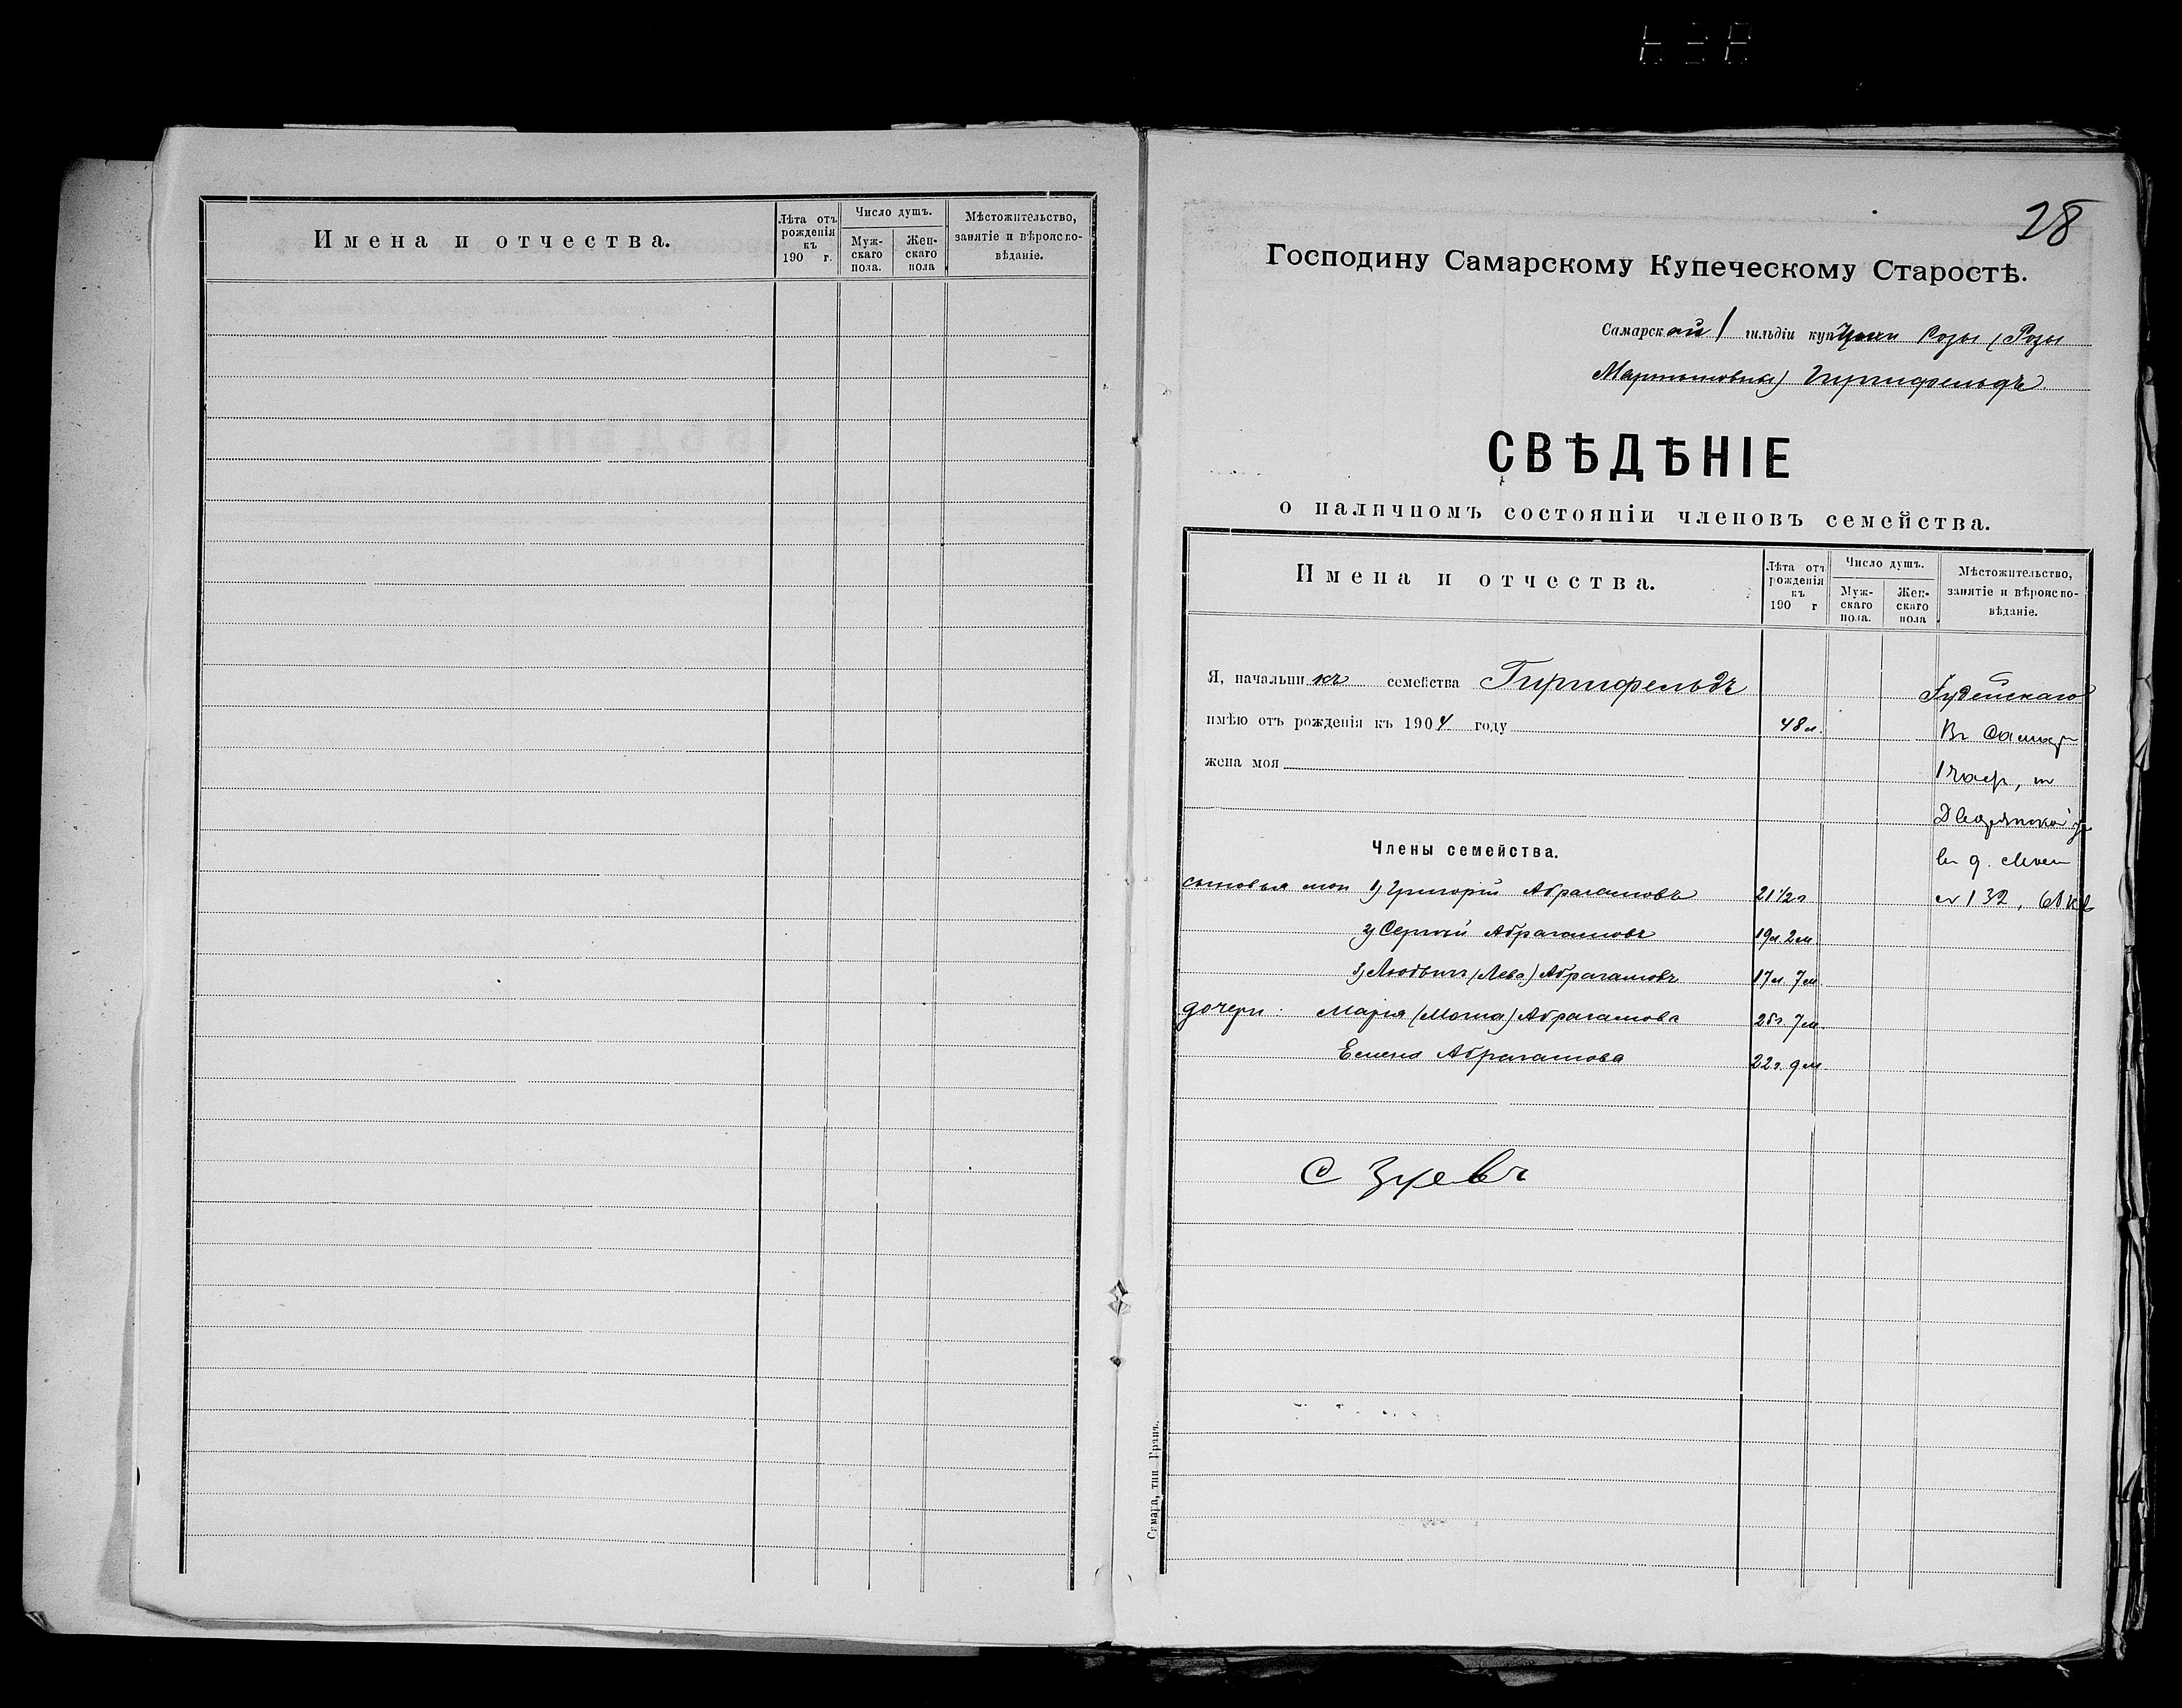 Имена и отчества.
Лѣта отъ рожденія къ 190 г.
Число душъ.
Муж-скаго пола.
Жен-скаго пола
Мѣстожительство, занятіе и вѣроиспо-вѣданіе.
28
Господину Самарскому Купеческому Старостѣ.
Самарской 1 гильдіи купчихи Розы (Розы
Мартыновны) Гиршфельдъ
СВѢДѢНІЕ
о наличномъ состояніи членовъ семейства.
Имена и отчества.
Лѣта отъ рожденія къ 190 г
Число душъ.
Муж-скаго пола.
Жен-скаго пола
Мѣстожительство, занятіе и вѣроиспо-вѣданіе.
Я, начальникъ семейства Гиршфельдъ Іудейскаго
имѣю отъ рожденія къ 1904 году 48 л. Въ Самар
жена моя 1 част, по
Дворянской ул
Члены семейства. въ д.
сыновья мои 1) Григорій Абрагамовъ 21 1/2 г № 132,
2) Сергѣй Абрагамовъ 19 л. 2 м
3) Людвигъ (Лева) Абрагамовъ 17 л. 7 м.
дочери: Марія (Маша) Абрагамова 7 м.
Елена Абрагамова 22 г. 9 м.
С Зуевъ
Самара, тип. Грана.